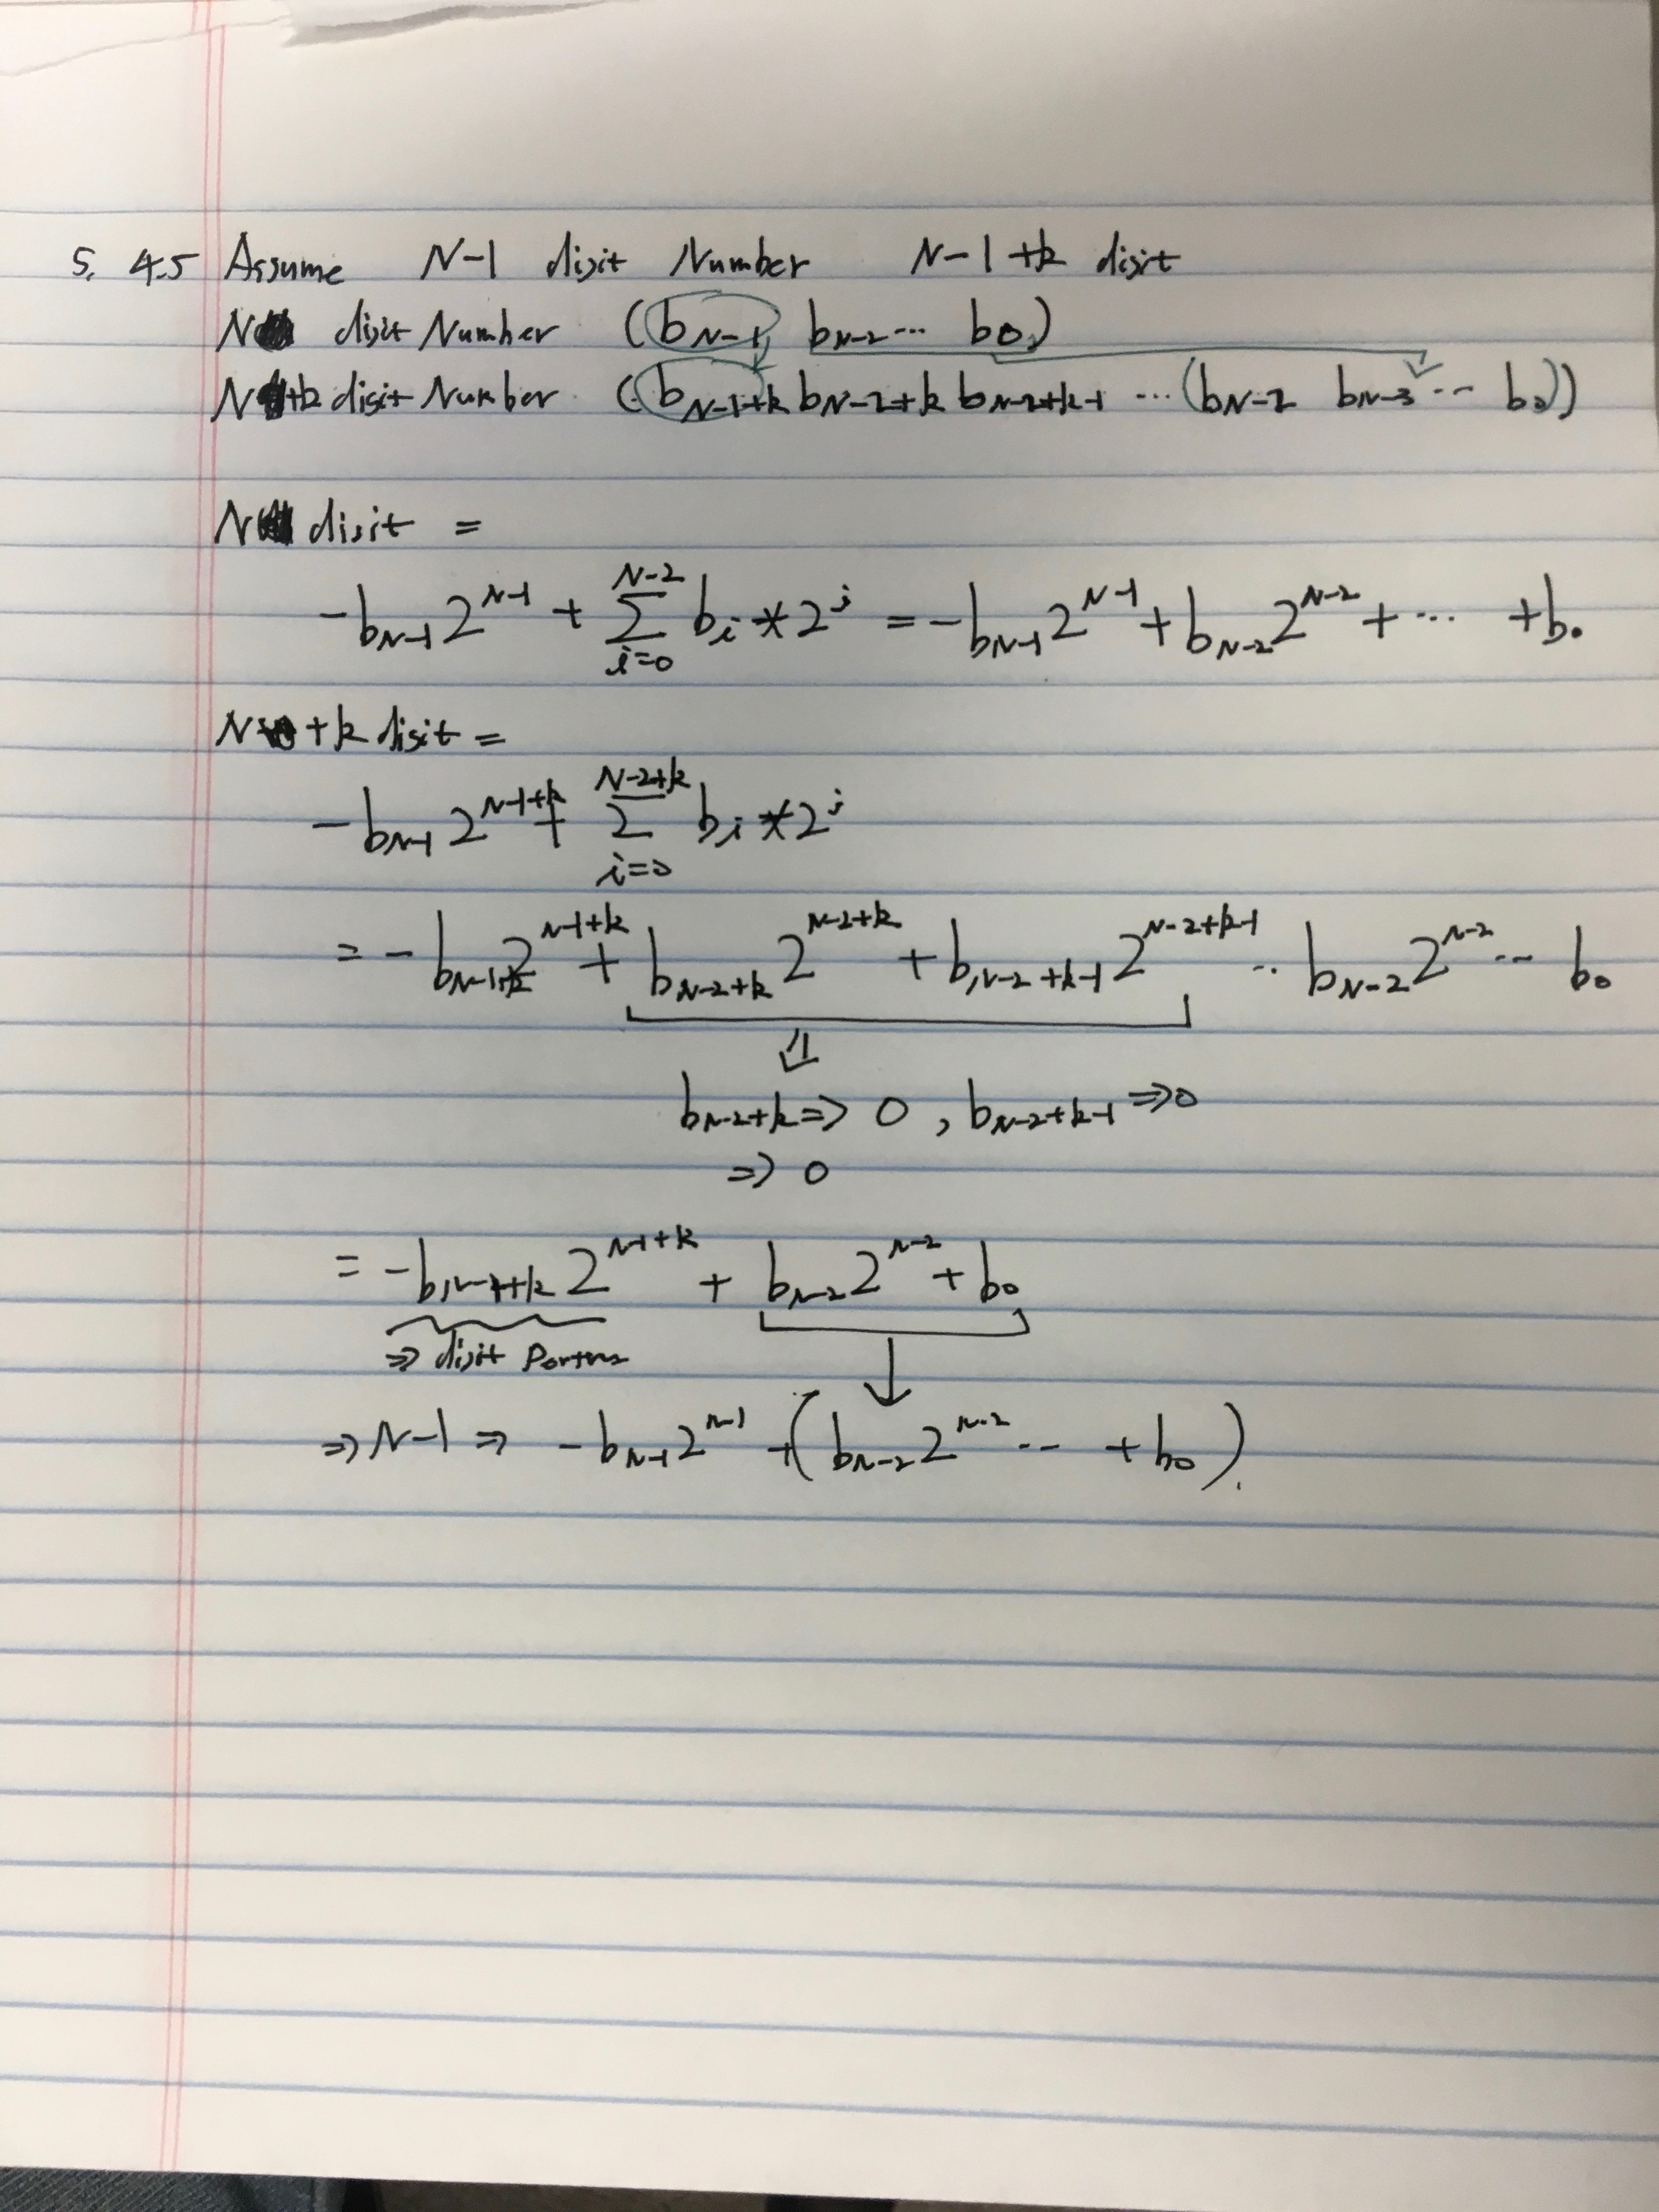 5. 4.5 Assume N-1 disit Number N-1+k disit
N disit Number (b_{N-1} b_{N-2} ... b_0)
N+k disit Number (b_{N-1+k} b_{N-2+k} b_{N-2+k-1} ... (b_{N-2} b_{N-3} ... b_0))
N disit =
-b_{N-1} 2^{N-1} + \sum_{i=0}^{N-2} b_i * 2^i = -b_{N-1} 2^{N-1} + b_{N-2} 2^{N-2} + ... + b_0
N +k disit =
-b_{N-1} 2^{N-1+k} + \sum_{i=0}^{N-2+k} b_i * 2^i
= -b_{N-1+k} 2^{N-1+k} + b_{N-2+k} 2^{N-2+k} + b_{N-2+k-1} 2^{N-2+k-1} .. b_{N-2} 2^{N-2} ... b_0
⇓
b_{N-2+k} ⇒ 0, b_{N-2+k-1} ⇒ 0
⇒ 0
= -b_{N-1+k} 2^{N-1+k} + b_{N-2} 2^{N-2} + b_0
⇒ disit
⇒ N-1 ⇒ -b_{N-1} 2^{N-1} + (b_{N-2} 2^{N-2} ... + b_0).